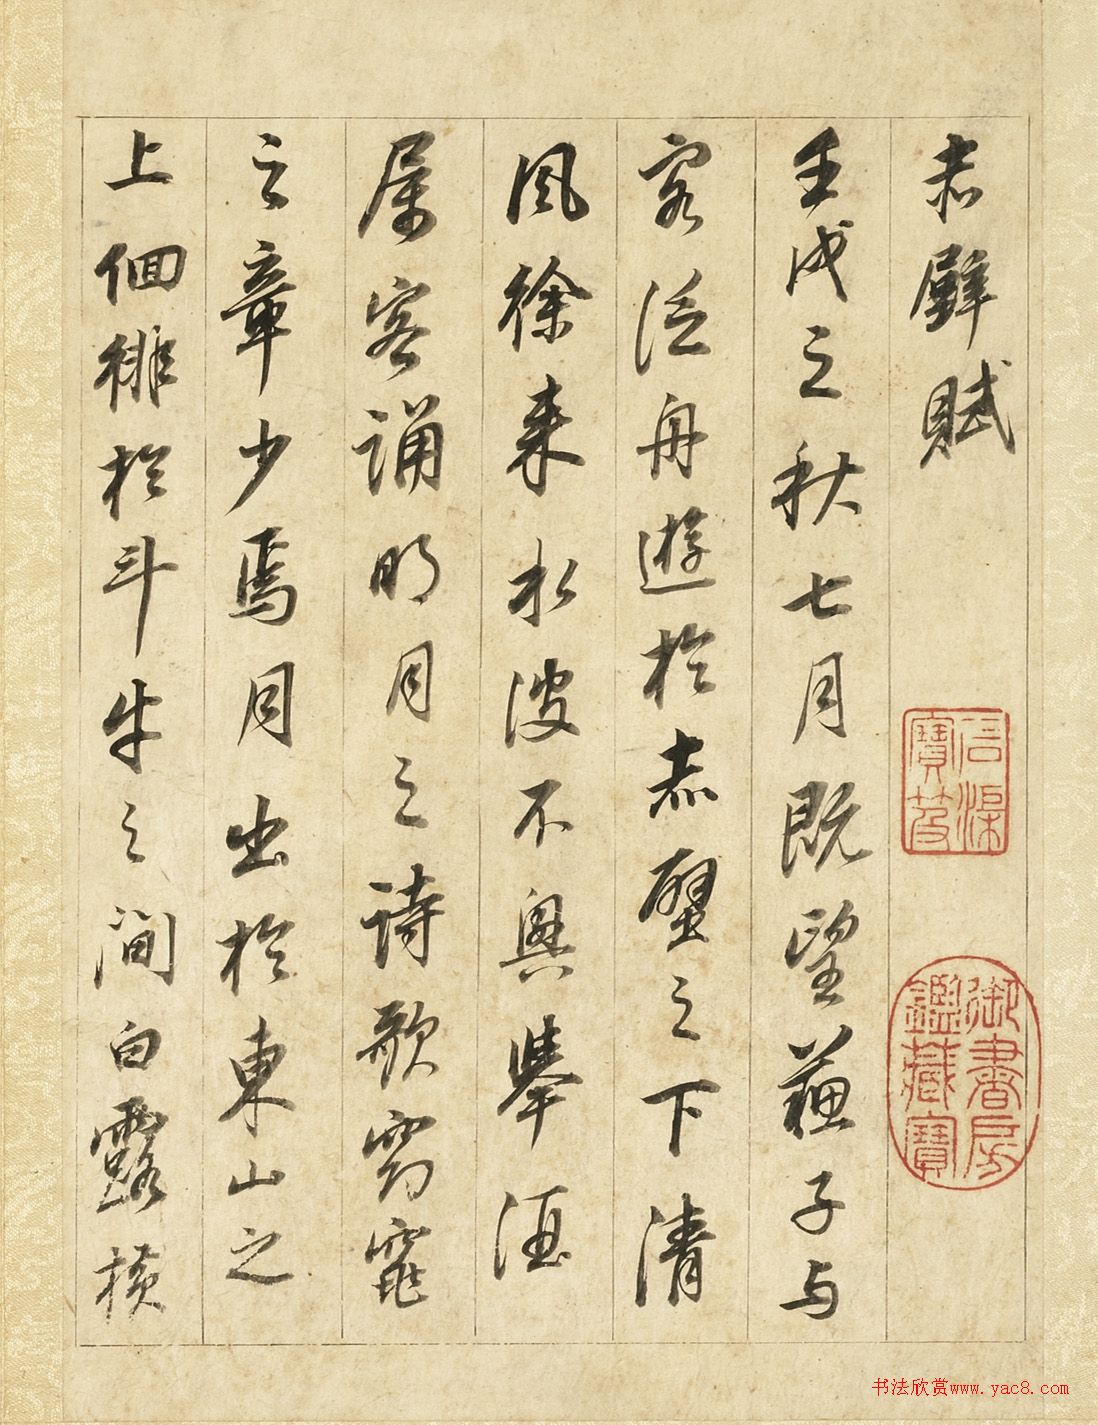 赤壁賦
壬戌之秋七月既望蘇子与
客泛舟遊於赤壁之下清
風徐来水波不興舉酒
屬客誦明月之詩歌窈窕
之章少焉月出於東山之
上徊徘於斗牛之間白露横
御書房鑑藏寶
书法欣赏www.yac8.com